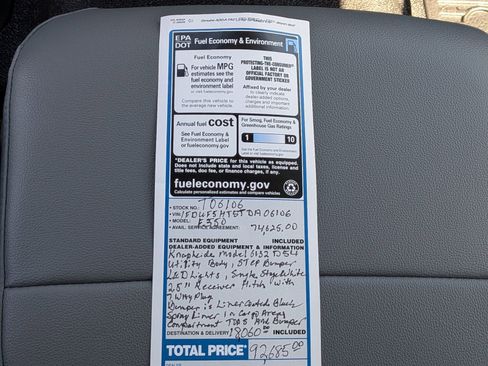 EPA
DOT
Fuel Economy & Environment
Fuel Economy
For vehicle MPG
estimates see the
fuel economy and
environment label
or visit fueleconomy.gov
Compare this vehicle to
the average new vehicle.
THIS
PROTECTING-THE-CONSUMER
LABEL IS NOT AN
OFFICIAL FACTORY OR
GOVERNMENT STICKER
Affixed by your dealer
to clearly indicate
dealer-added options,
charges and important
additional information.
Annual fuel cost
See Fuel Economy &
Environment Label
or fueleconomy.gov
For Smog, Fuel Economy &
Greenhouse Gas Ratings
1 10
See the Fuel Economy & Environment Label
or visit fueleconomy.gov
*DEALER'S PRICE for this vehicle as equipped.
Does not include state and local taxes, license and
title fees, doc fee, or finance charges, if any.
fueleconomy.gov
Calculate personalized estimates and compare vehicles
• STOCK NO.: T06106
• VIN: 1FDUF5HT5TDA06106
• MODEL: F550
• AVAIL. SERVICE AGREEMENT: 74,625.00
STANDARD EQUIPMENT INCLUDED
DEALER-ADDED EQUIPMENT & INFORMATION
Knapheide Model 6132 D54
Utility Body, STEP Bumper
LED Lights, Single Stage White
2.5" Receiver Hitch with
7 Way Plug
Bumper is Liner Coated Black
Spray Liner in Cargo Area,
Compartment TOPS And Bumper
DESTINATION & DELIVERY 18060.00 INCLUDED
TOTAL PRICE* 92,685.00